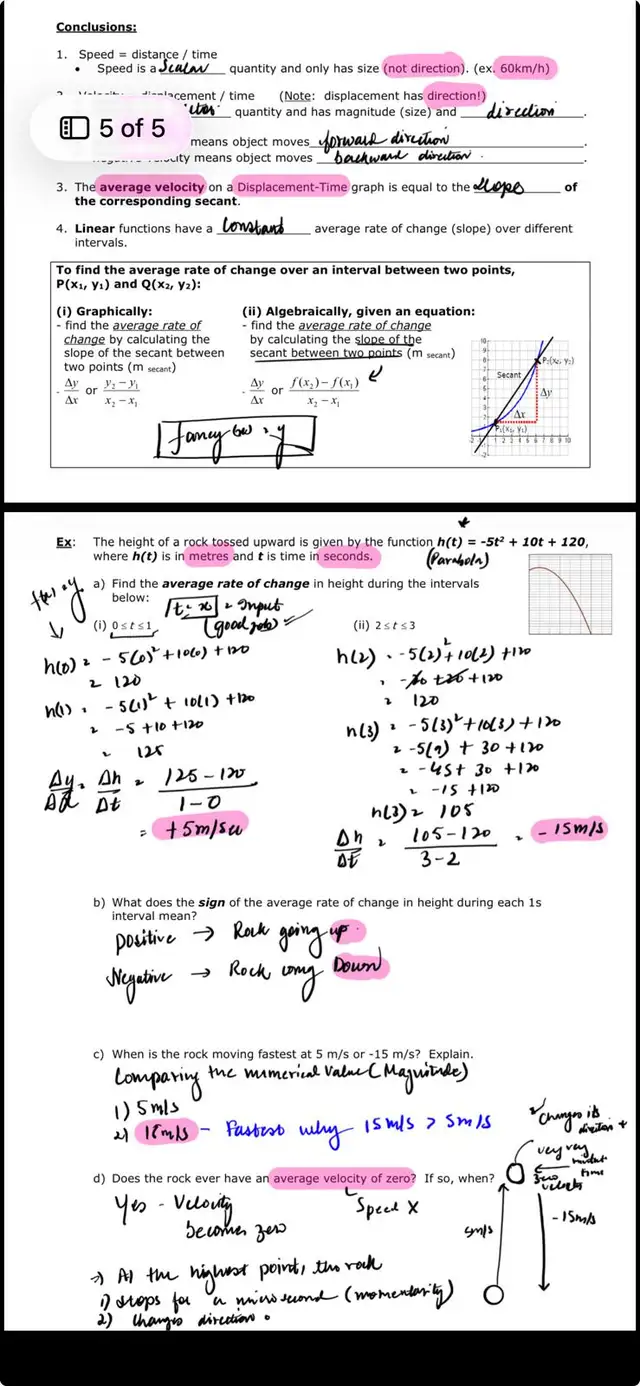 Conclusions:
1. Speed = distance / time
• Speed is a Scalar quantity and only has size (not direction). (ex. 60km/h)
displacement / time (Note: displacement has direction!)
quantity and has magnitude (size) and direction.
5 of 5
means object moves forward direction.
means object moves backward direction.
3. The average velocity on a Displacement-Time graph is equal to the slope of
the corresponding secant.
4. Linear functions have a Constant average rate of change (slope) over different
intervals.
To find the average rate of change over an interval between two points,
P(x₁, y₁) and Q(x₂, y₂):
(i) Graphically:
- find the average rate of
change by calculating the
slope of the secant between
two points (m secant)
Δy/Δx or (y₂ − y₁)/(x₂ − x₁)
(ii) Algebraically, given an equation:
- find the average rate of change
by calculating the slope of the
secant between two points (m secant)
Δy/Δx or (f(x₂) − f(x₁))/(x₂ − x₁)
P₂(x₂, y₂)
Secant
Δy
Δx
P₁(x₁, y₁)
Ex: The height of a rock tossed upward is given by the function h(t) = -5t² + 10t + 120,
where h(t) is in metres and t is time in seconds. (Parabola)
a) Find the average rate of change in height during the intervals
below:
t = x = Input
(good job)
(i) 0 ≤ t ≤ 1
h(0) = -5(0)² + 10(0) + 120
= 120
h(1) = -5(1)² + 10(1) + 120
= -5 + 10 + 120
= 125
Δh/Δt = (125 - 120)/(1 - 0)
= +5m/sec
(ii) 2 ≤ t ≤ 3
h(2) = -5(2)² + 10(2) + 120
= -20 + 20 + 120
= 120
h(3) = -5(3)² + 10(3) + 120
= -5(9) + 30 + 120
= -45 + 30 + 120
= -15 + 120
h(3) = 105
Δh/Δt = (105 - 120)/(3 - 2) = -15m/s
b) What does the sign of the average rate of change in height during each 1s
interval mean?
Positive → Rock going up.
Negative → Rock comg Down
c) When is the rock moving fastest at 5 m/s or -15 m/s? Explain.
Comparing the numerical value (Magnitude)
1) 5m/s
2) 15m/s - Fastest why 15m/s > 5m/s
d) Does the rock ever have an average velocity of zero? If so, when?
Yes - Velocity
becomes zero
Speed X
→ At the highest point, the rock
1) stops for a microsecond (momentarity)
2) Changes direction.
Changes its
direction
very very
time
zero
velocity
5m/s
-15m/s